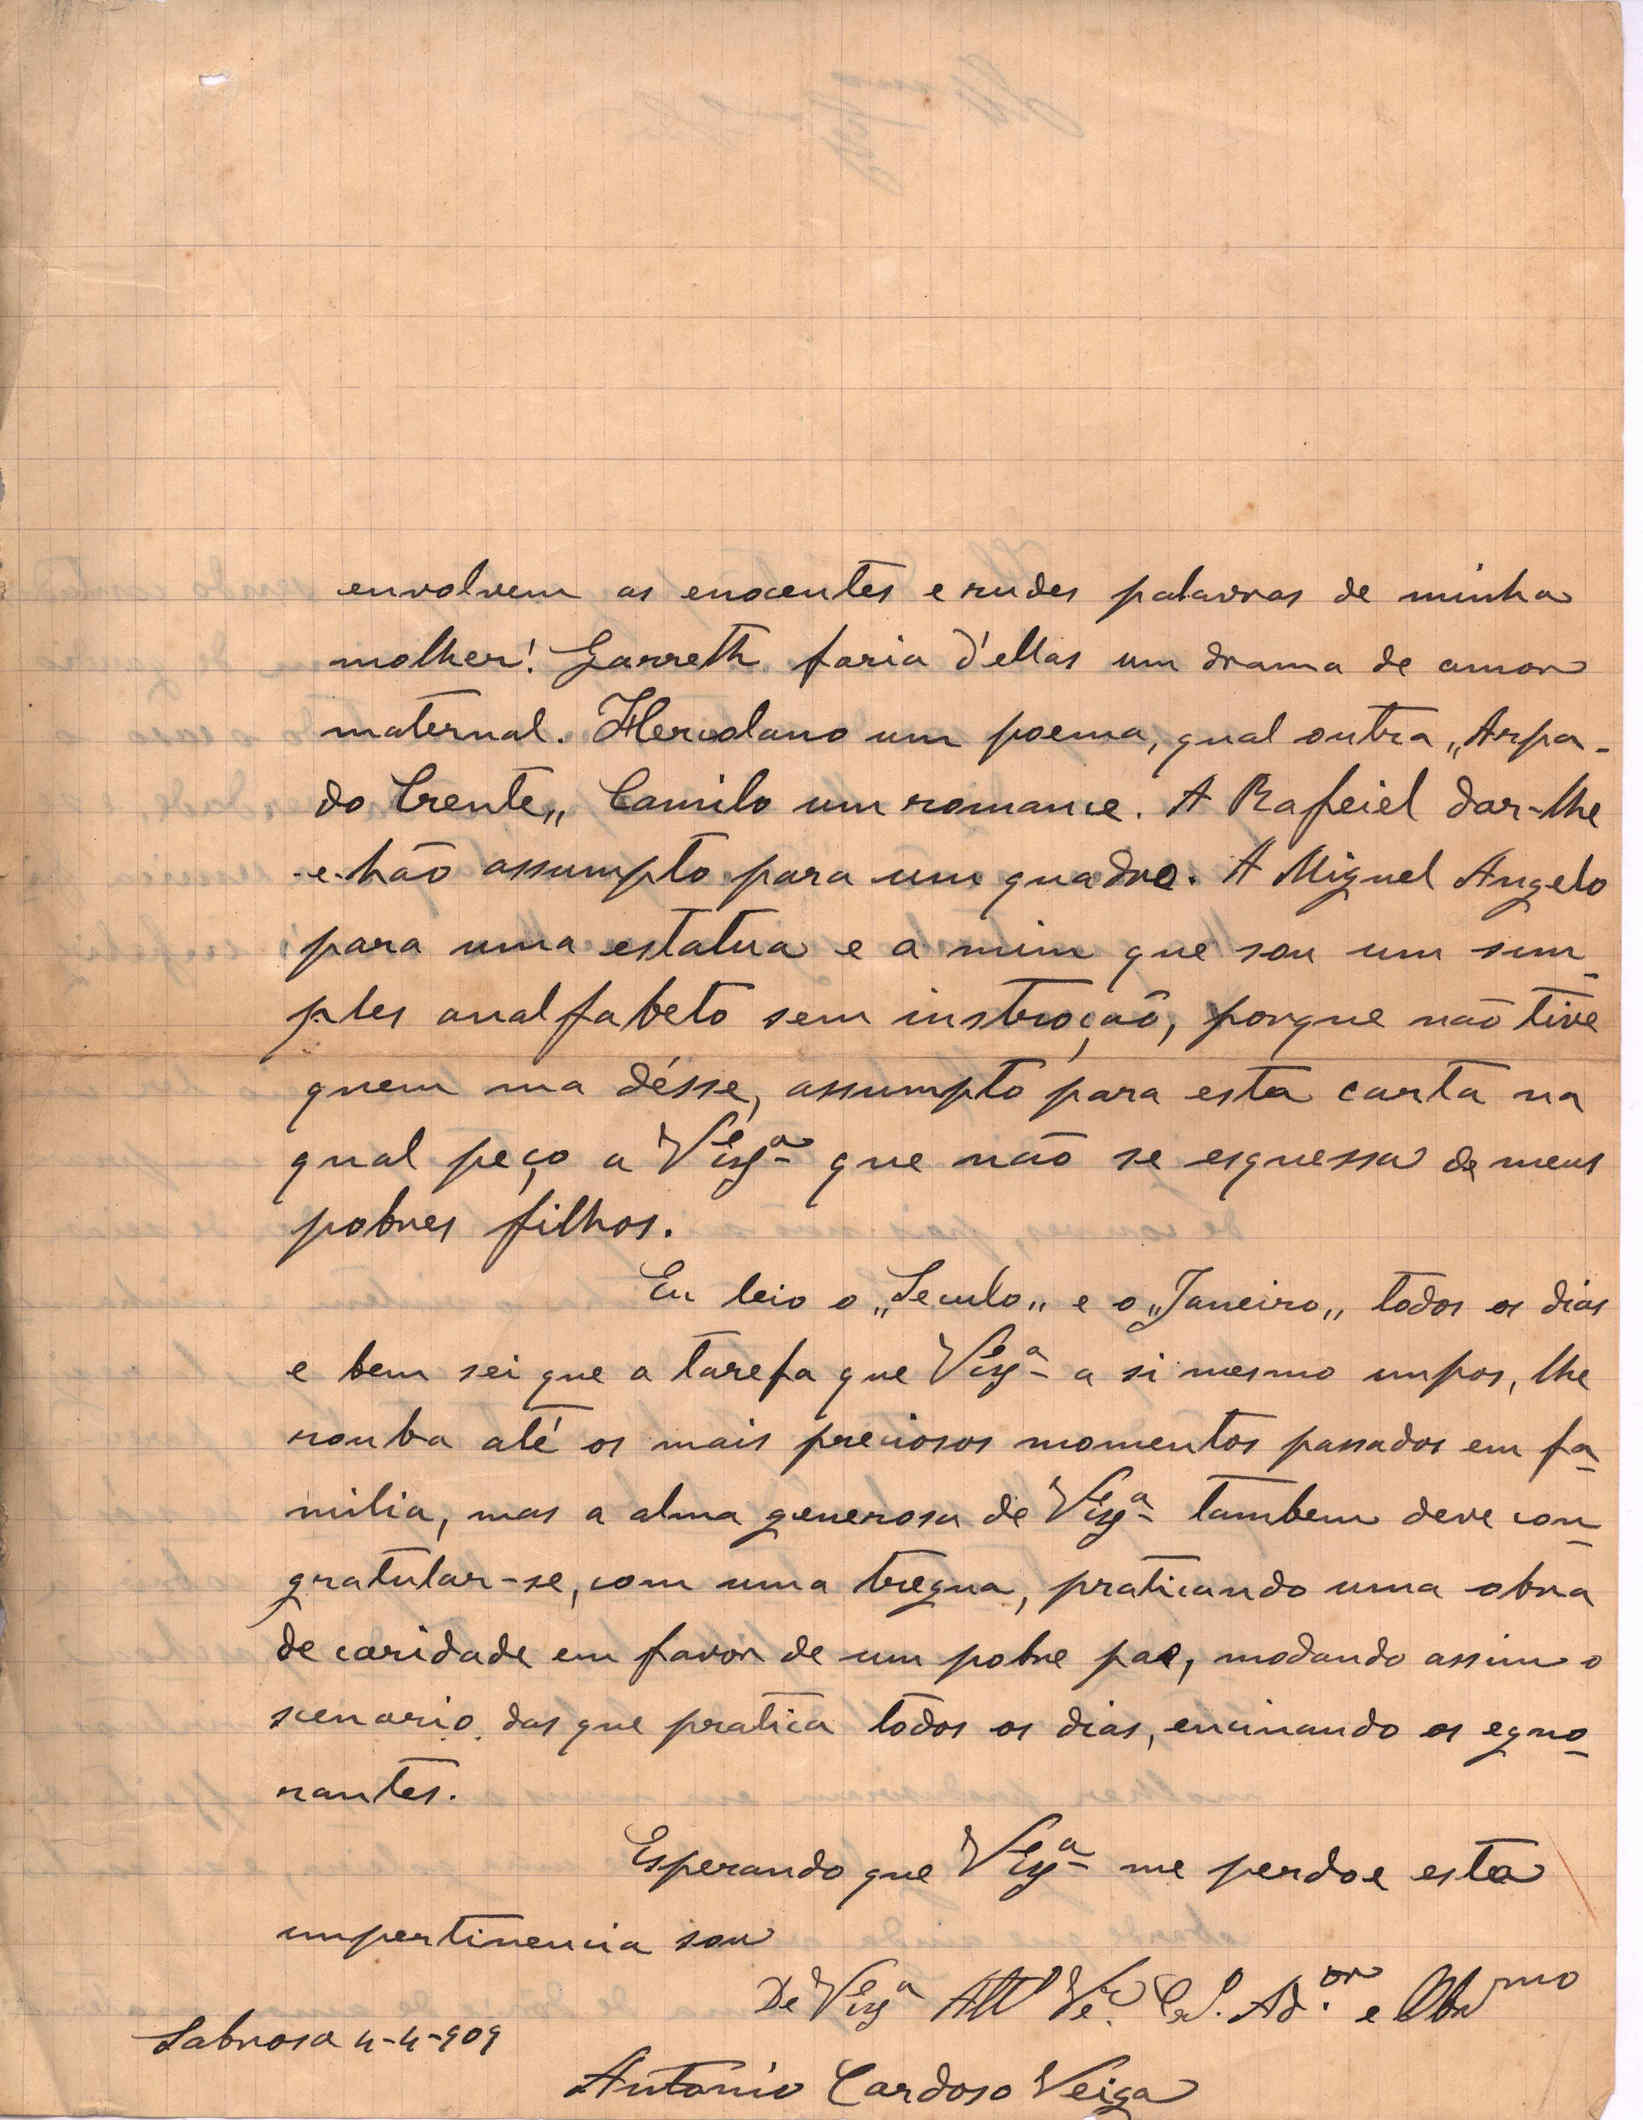 envolvem as enocentes e rudes palavras de minha
molher! Garreth faria d'ellas um drama de amor
maternal. Herculano um poema, qual outra „Arpa-
do Crente„ Camilo um romance. A Rafeiel dar-lhe
-e-hão assumpto para um quadro. A Miguel Angelo
para uma estatua e a mim que sou um sim-
ples analfabeto sem instroção, porque não tive
quem ma désse, assumpto para esta carta na
qual peço a V Exª que não se esquessa de meus
pobres filhos.
Eu leio o „Seculo„ e o „Janeiro„ todos os dias
e bem sei que a tarefa que V Exª a si mesmo impos, lhe
rouba até os mais preciosos momentos passados em fa-
milia, mas a alma generosa de V Exª tambem deve con-
gratular-se, com uma tregua, praticando uma obra
de caridade em favor de um pobre pae, modando assim o
scenario das que pratica todos os dias, encinando os egno-
rantes.
Esperando que V Exª me perdoe esta
impertinencia sou
De V Exª Attº Ve.ʳ Cr.º Ad.ᵒʳ e Obrᵐᵒ
Sabrosa 4-4-909
Antonio Cardoso Veiga